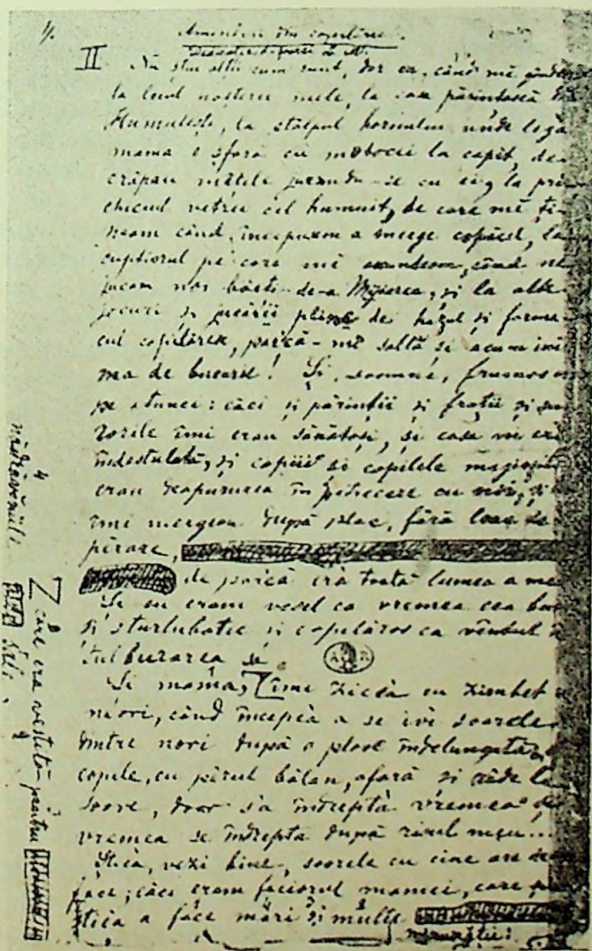 Amintiri din copilărie.
II Nu știu alții cum sunt, dar eu, când mă gândesc
la locul nașterii mele, la casa părintească din
Humulești, la stâlpul hornului unde lega
mama o șfară cu motocei la capăt, de
crăpau mâțele jucându-se cu ei, la pri-
chiciul vetrei cel humuit, de care mă ți-
neam când începusem a merge copăcel, la
cuptiorul pe care mă ascundeam, când ne
jucam noi băieții de-a Mijoarca, și la alte
jocuri și jucării pline de hazul și farme-
cul copilăriei, parcă-mi saltă și acum ini-
ma de bucurie! Și, Doamne, frumos era
pe atunci: căci și părinții și frații și su-
rorile îmi erau sănătoși, și casa ne era
îndestulată, și copiii și copilele megieșilor
erau deapururea în petrecere cu noi, și
îmi mergeau după plac, fără leac de
părare,
de parcă era toată lumea a mea
Și eu eram vesel ca vremea cea bună
și sturlubatic și copilăros ca vântul în
tulburarea sa.
Și mama, îmi zicea cu zâmbet
neori, când începea a se ivi soarele
dintre nori după o ploaie îndelungată,
copile, cu părul bălan, afară și râde la
soare, doar s'a îndrepta vremea și
vremea se îndrepta după râsul meu...
Știa, vezi bine, soarele cu cine are de a
face; căci eram feciorul mamei, care
știea a face mări și multe
minunății:
4 năzdrăvăniile
care era vestită pentru
sale.